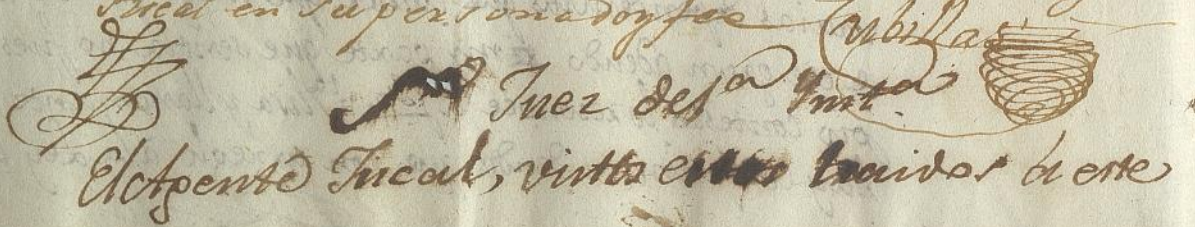 Fiscal en su persona doy fee Cubillas
S.or Juez de 1.a Ynst.a
El Agente Fiscal, vistos estos traidos à este